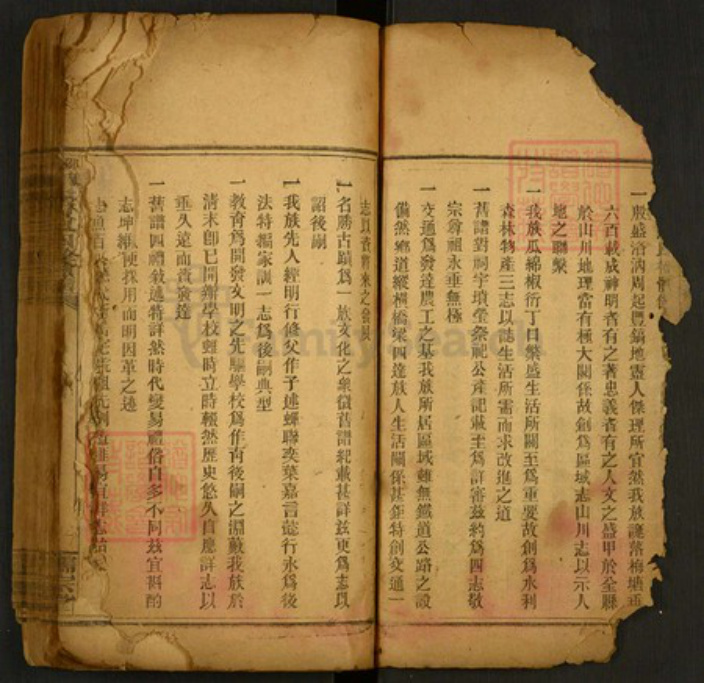 一殷盛洽汭周起豐鎬地靈人傑理所宜然我族誕落梅塘垂
六百載威神明者有之著忠義者有之人文之盛甲於全縣
於山川地理當有極大關係故創爲區域志山川志以示人
地之聯繫
一我族瓜綿椒衍丁口繁盛生活所關至爲重要故創爲水利
森林物產三志以誌生活所需而求改進之道
一舊譜對祠宇墳塋祭祀公產記載至爲詳審茲約爲四志敬
宗尊祖永垂無極
一交通爲發達農工之基我族所居區域雖無鐵道公路之設
備然鄉道縱橫橋梁四達族人生活關係甚鉅特創交通一
志以資將來之發展
一名勝古蹟爲一族文化之象徵舊譜紀載甚詳茲更爲志以
詔後嗣
一我族先人經明行修父作子述蟬聯奕葉嘉言懿行永爲後
法特編家訓一志爲後嗣典型
一教育爲開發文明之先驅學校爲作育後嗣之淵藪我族於
清末卽已開辦學校雖時立時輟然歷史悠久自應詳志以
垂久遠而資發達
一舊譜四禮敘述特詳然時代變易禮俗自多不同茲宜斟酌
損益志坤維便採用而明因革之迹
FamilySearch